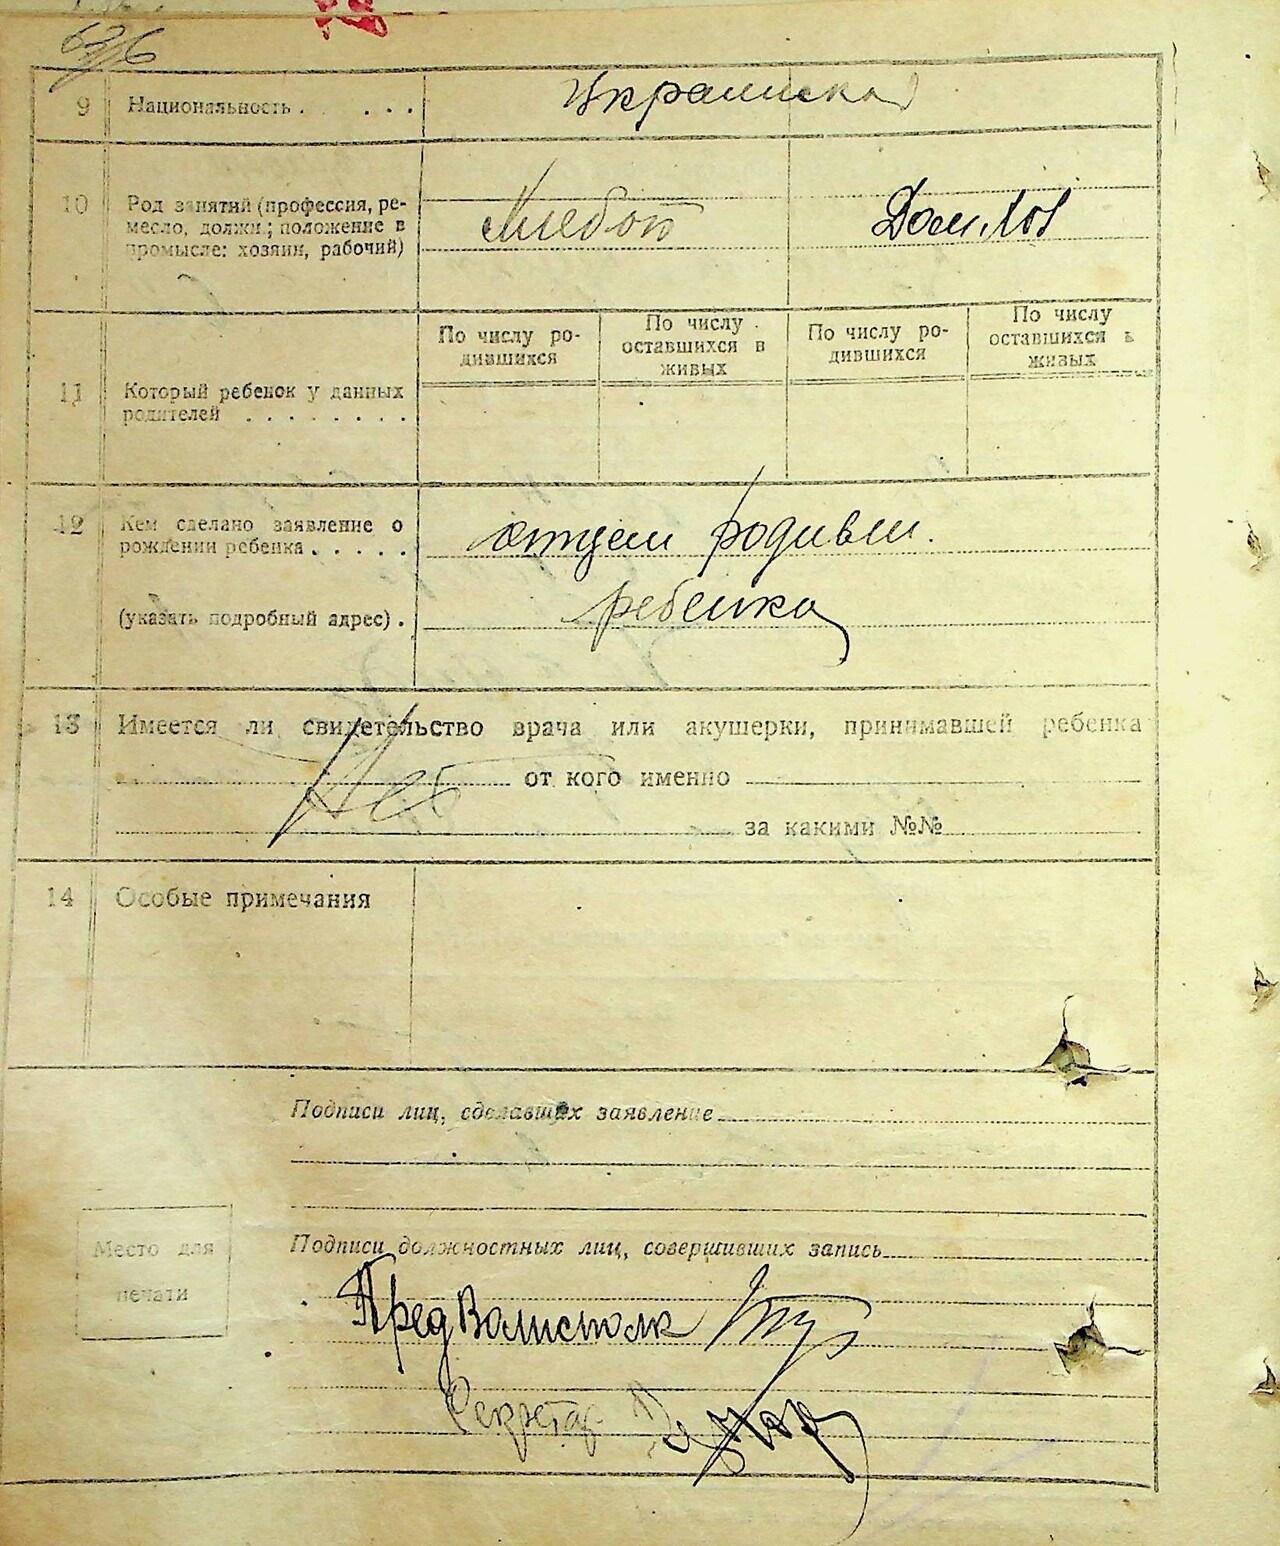 9 Национальность . . . . Украинская
10 Род занятий (профессия, ре-
месло, должн.; положение в
промысле: хозяин, рабочий)
Хлебоп Дом. Хоз
По числу ро-
дившихся
По числу
оставшихся в
живых
По числу ро-
дившихся
По числу
оставшихся в
живых
11 Который ребенок у данных
родителей . . . . . . . .
12 Кем сделано заявление о
рождении ребенка . . . . .
отцем родивш.
(указать подробный адрес) .
ребенка
13 Имеется ли свидетельство врача или акушерки, принимавшей ребенка
Нет от кого именно
за какими №№
14 Особые примечания
Подписи лиц, сделавших заявление
Место для
печати
Подписи должностных лиц, совершивших запись
Пред Волисполк
Секретар